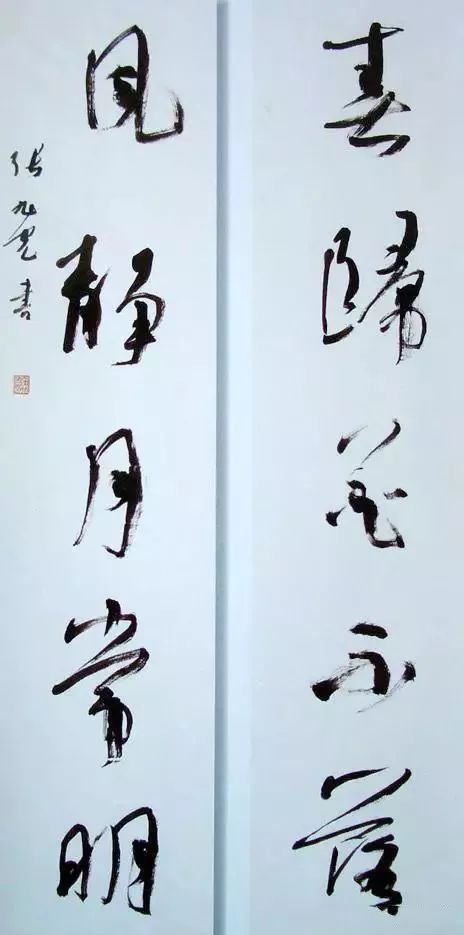 春歸花不落
風靜月常明
張九光書